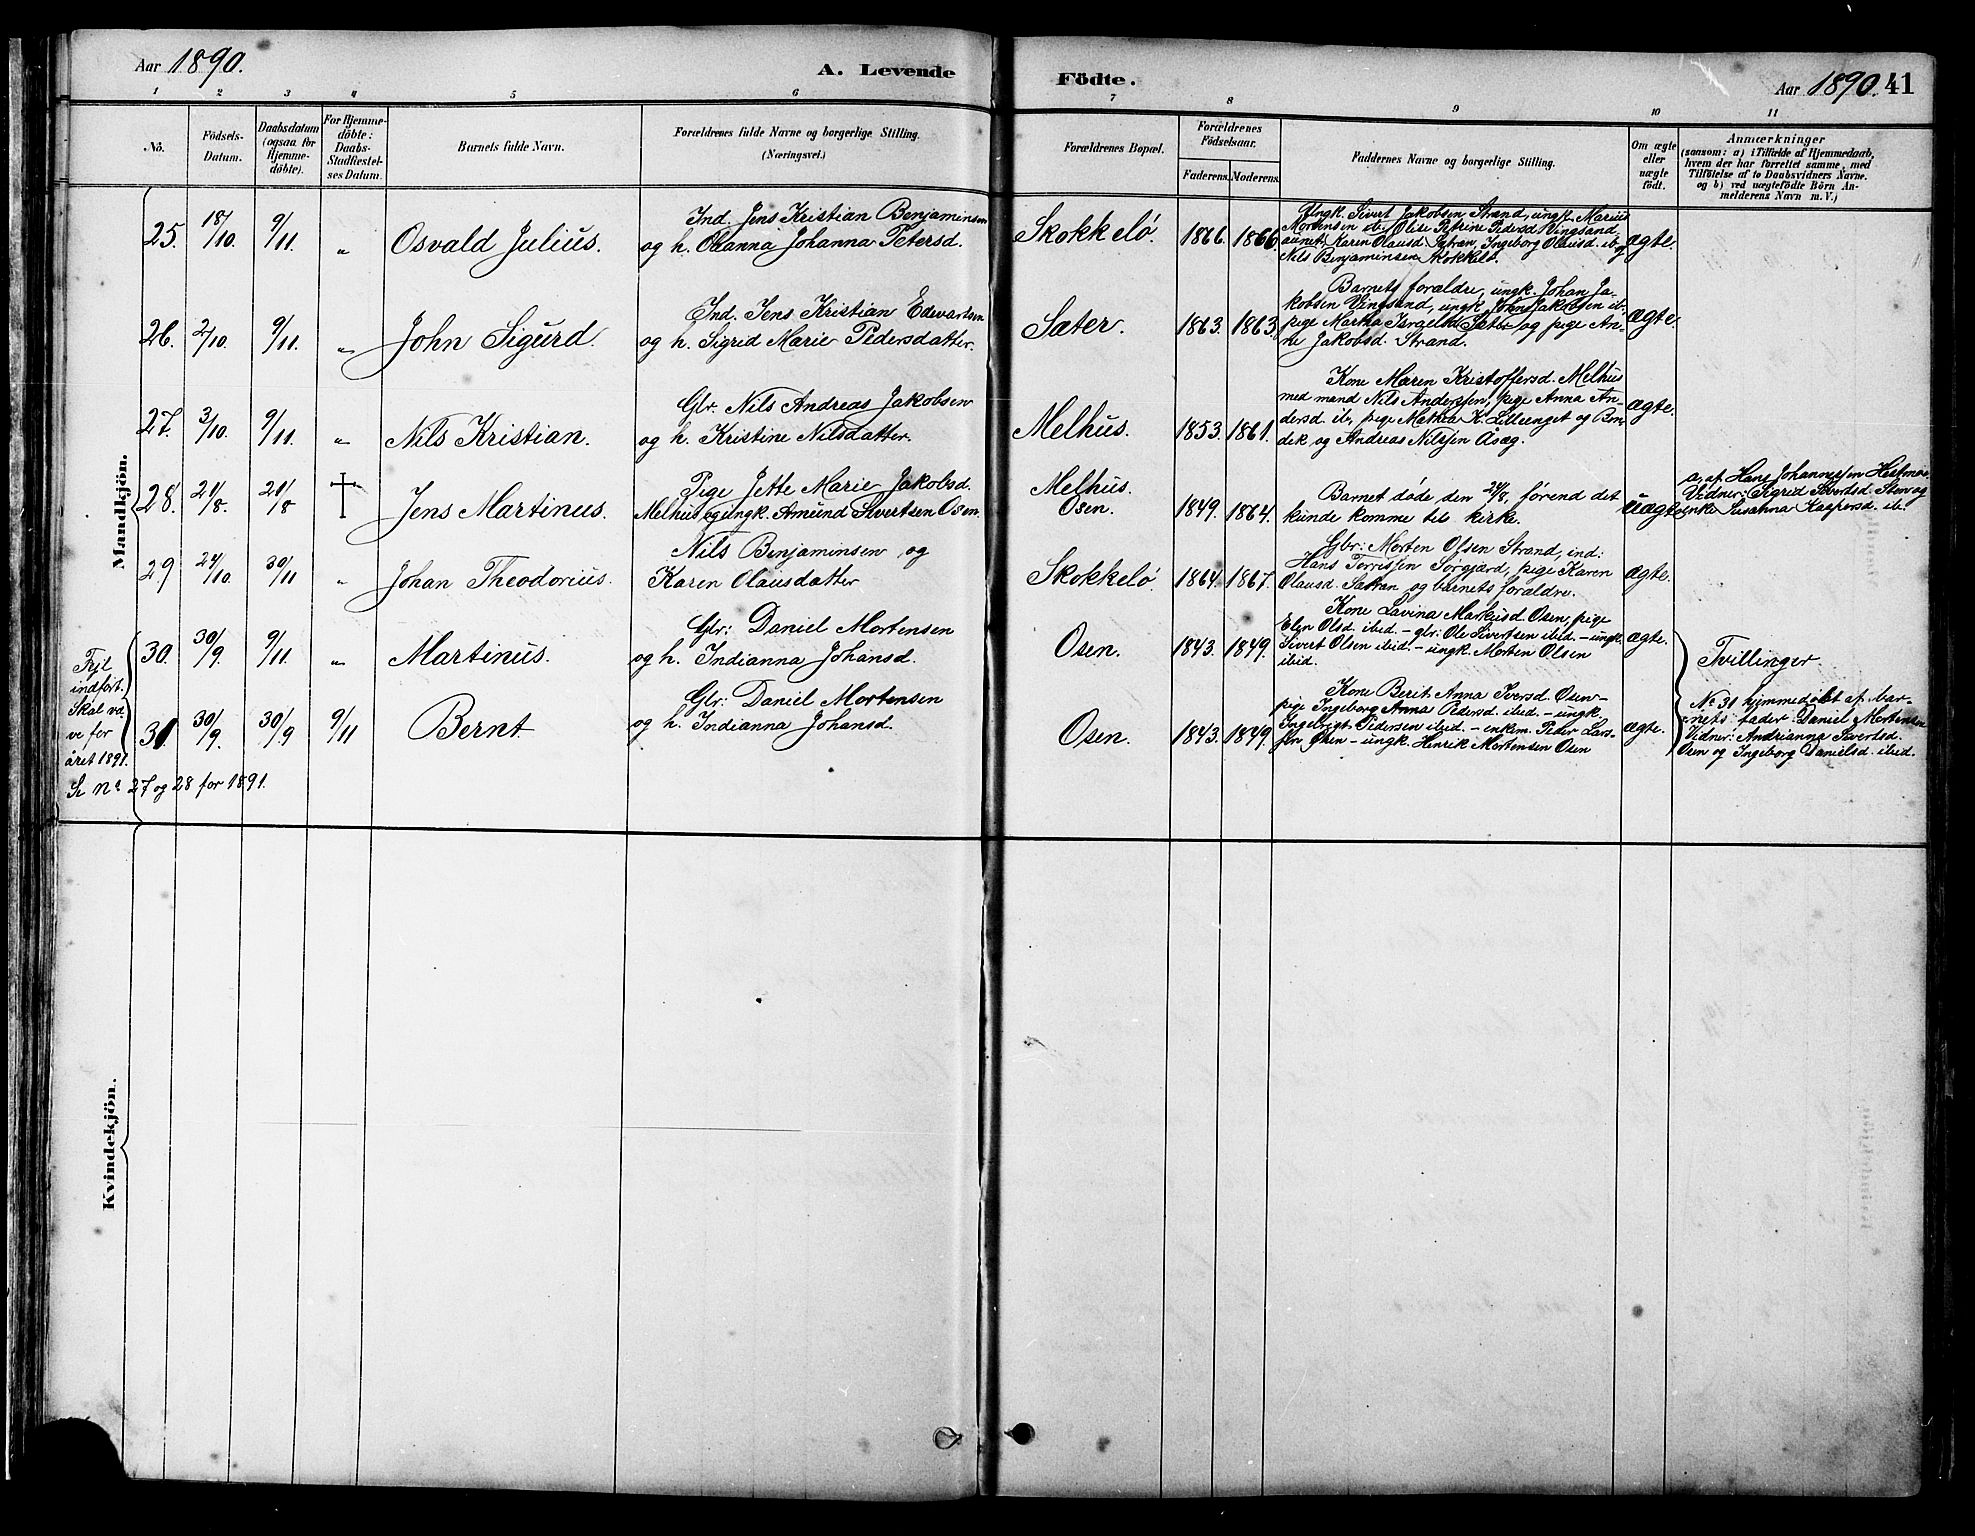 Aar 1890.
A. Levende
Födte.
Aar 1890. 41
1 2 3 4 5 6 7 8 9 10 11
No.
Födsels-
Datum.
Daabsdatum
(ogsaa for
Hjemme-
döbte).
For Hjemme-
döbte:
Daabs-
Stadfæstel-
ses Datum.
Barnets fulde Navn.
Forældrenes fulde Navne og borgerlige Stilling.
(Næringsvei.)
Forældrenes Bopæl.
Forældrenes
Födselsaar.
Faderens. Moderens.
Faddernes Navne og borgerlige Stilling.
Om ægte
eller
uægte
födt.
Anmærkninger
(saasom: a) i Tilfælde af Hjemmedaab,
hvem der har forrettet samme, med
Tilföielse af to Daabsvidners Navne.
og b) ved uægtefödte Börn An-
melderens Navn m. V.)
Mandkjön.
25. 18/10. 9/11. „ Osvald Julius.
Ind. Jens Kristian Benjaminsen
og h. Olianna Johanna Petersd.
Skokkelö. 1866. 1866.
Ungk. Sivert Jakobsen Strand, ungk. Marius
Mortensen ib. Oline Petrine Pedersd Vingsand,
aunet, Karen Olausd. Sætran, Ingeborg Olausd. ib. og
Nils Benjaminsen Skokkelö.
ægte.
26. 2/10. 9/11. „ John Sigurd.
Ind. Jens Kristian Edvartsen
og h. Sigrid Marie Pedersdatter.
Sæter. 1863. 1863.
Barnets forældre, ungk. Johan Ja-
kobsen Vingsand, ungk. John Jakobsen ib.
pige Martha Israelsd Sæter og pige An-
ne Jakobsd. Strand.
ægte.
27. 3/10. 9/11. „ Nils Kristian.
Glr. Nils Andreas Jakobsen
og h. Kristine Nilsdatter.
Melhus. 1853. 1861.
Kone Maren Kristoffersd. Melhus
med mand Nils Anderssen, pige Anna An-
dersd. ib, pige Mathea K. Lilleenget og Ben-
dik og Andreas Nilssen Åsæg.
ægte.
28. 21/8. 21/8 † Jens Martinus.
Pige Jette Marie Jakobsd.
Melhus og ungk. Amund Sivertsen Osen.
Melhus.
Osen. 1849. 1864.
Barnet døde den 24/8, førend det
kunde komme til kirke.
uægte
a, af Hans Johannessen Hestmo.
Vidner: Sigrid Sivertsd. Sten og
enke Susanna Kaspersd. ib.
29 24/10. 30/11 „ Johan Theodorius.
Nils Benjaminsen og
Karen Olausdatter
Skokkelö 1864. 1867.
Gbr: Morten Olsen Strand, ind:
Hans Torrissen Sørgjærd, pige Karen
Olausd. Sætran og barnets forældre.
ægte.
30. 30/9. 9/11. „ Martinus.
Glr: Daniel Mortensen
og h. Indianna Johansd.
Osen. 1843. 1849.
Kone Lavina Markusd Osen, pige
Elen Olsd. ibid. – glr: Ole Sivertsen ibid. – ungk.
Sivert Olsen ibid. – ungk. Morten Olsen
ibid.
ægte.
Tvillinger
31. 30/9. 30/9 9/11 Bernt
Glr: Daniel Mortensen
og h. Indianna Johansd.
Osen. 1843. 1849.
Kone Berit Anna Iversd. Osen–
pige Ingeborg Anna Pedersd. ibid. – ungk.
Ingebrigt Pedersen ibid. – enkem. Peder Lars-
sen Osen – ungk. Henrik Mortensen Osen
ægte.
No 31 hjemmedøbt af bar-
nets fader Daniel Mortensen
Vidner: Andrianna Sivertsd.
Osen og Ingeborg Danielsd. ibid.
Fejl
indført.
Skal væ-
re for
året 1891.
Se No 27 og 28 for 1891.
Kvindekjön.